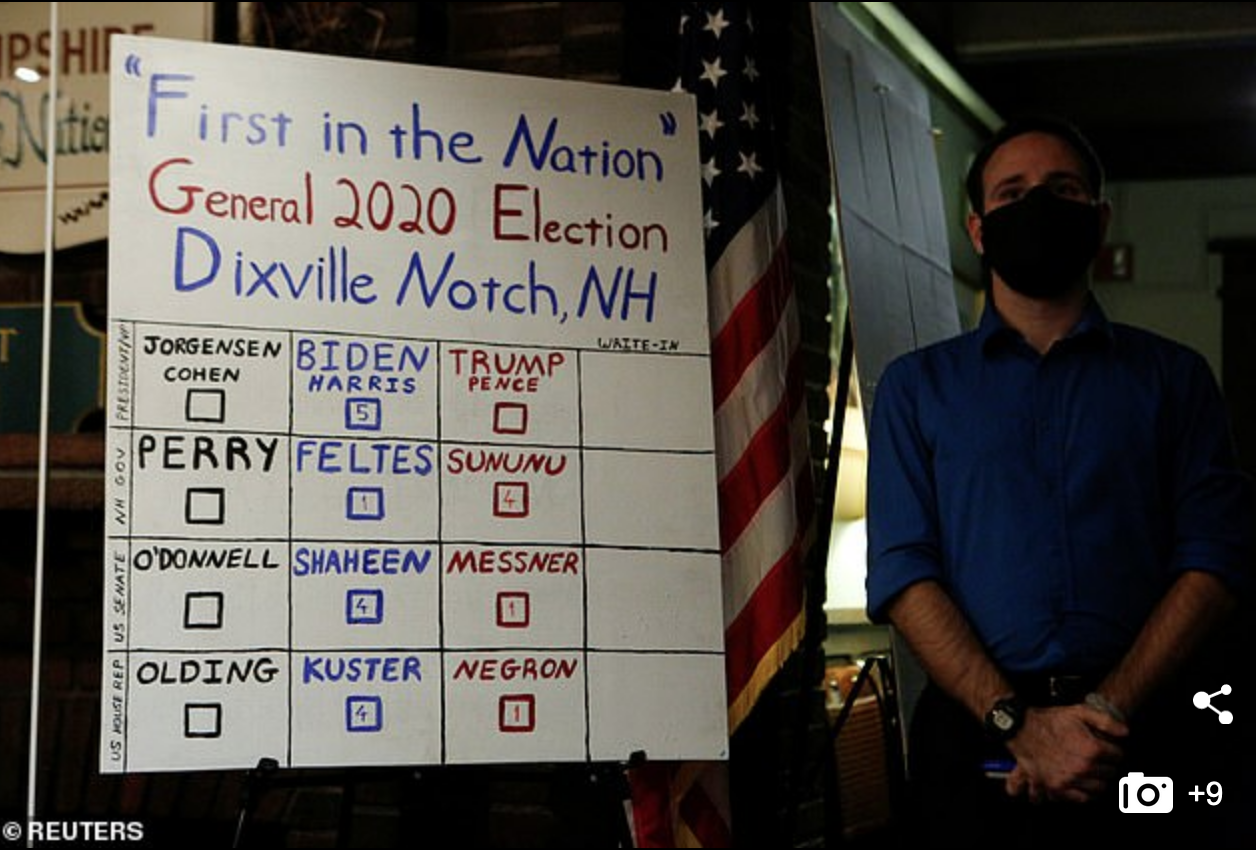 “First in the Nation”
General 2020 Election
Dixville Notch, NH
WRITE-IN
PRESIDENT/VP
JORGENSEN
COHEN
BIDEN
HARRIS
5
TRUMP
PENCE
NH GOV
PERRY
FELTES
1
SUNUNU
4
US SENATE
O'DONNELL
SHAHEEN
4
MESSNER
1
US HOUSE REP
OLDING
KUSTER
4
NEGRON
1
+9
© REUTERS